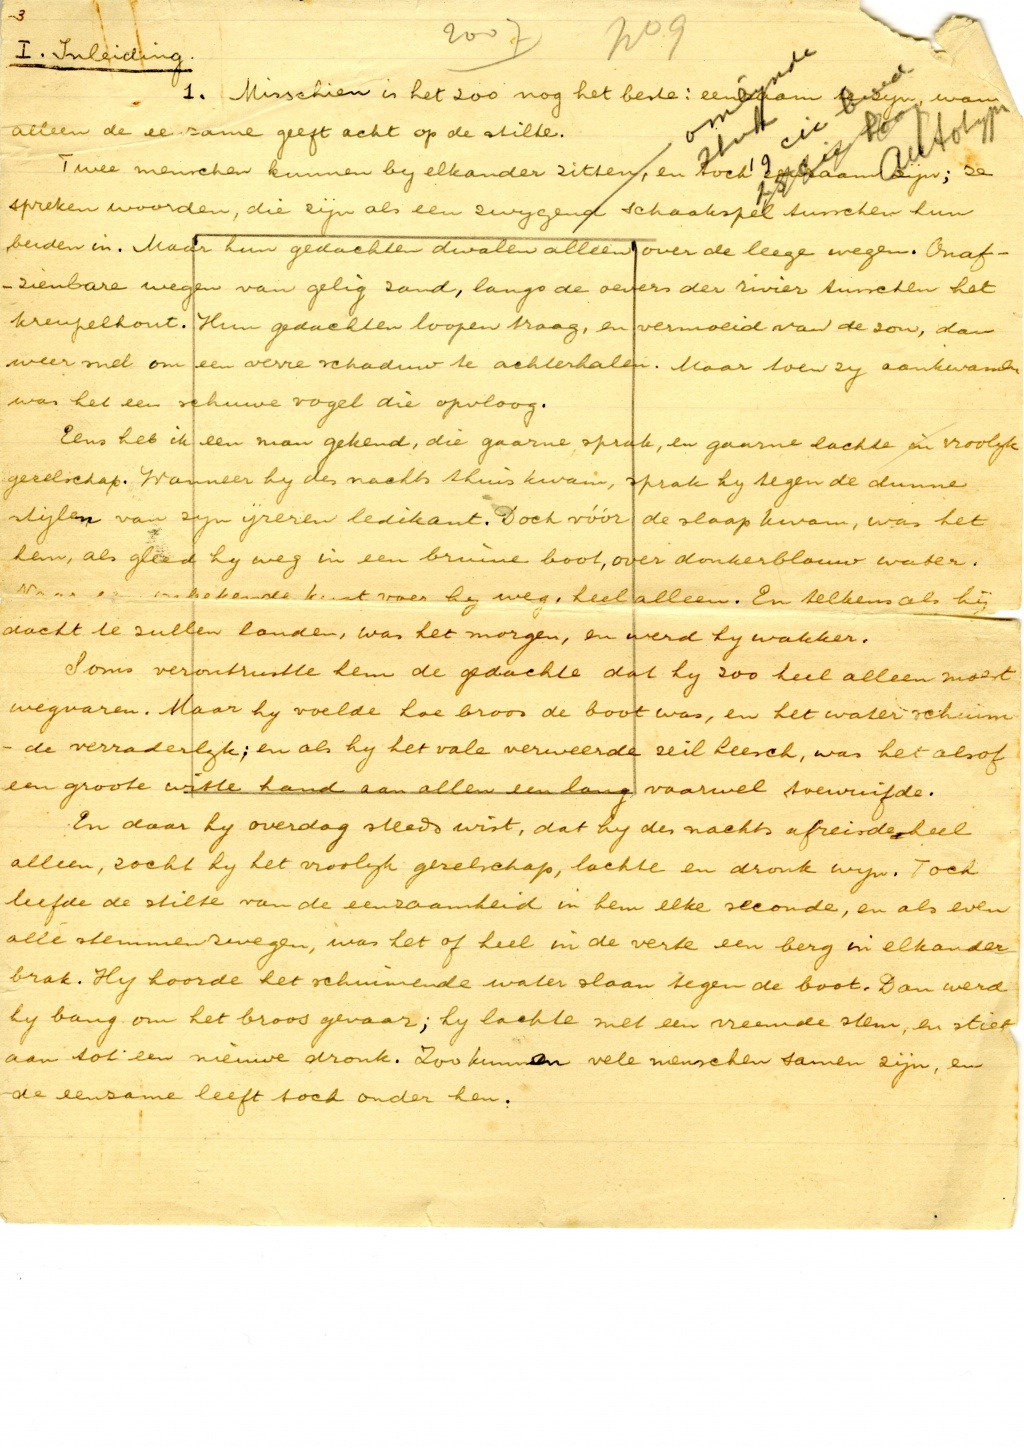 3
2007 209
I. Inleiding.
omlijnde
stuk
19 cic breed
autotypie
1. Misschien is het zoo nog het beste: eenzaam te zijn, want
alleen de eenzame geeft acht op de stilte.
Twee menschen kunnen bij elkander zitten, en toch eenzaam zijn; ze
spreken woorden, die zijn als een zwijgend schaakspel tusschen hun
beiden in. Maar hun gedachten dwalen alleen over de leege wegen. Onaf-
-zienbare wegen van gelig zand, langs de oevers der rivier tusschen het
kreupelhout. Hun gedachten loopen traag, en vermoeid van de zon, dan
weer snel om een verre schaduw te achterhalen. Maar toen zij aankwamen
was het een schuwe vogel die opvloog.
Eens heb ik een man gekend, die gaarne sprak, en gaarne lachte in vroolijk
gezelschap. Wanneer hij des nachts thuis kwam, sprak hij tegen de dunne
stijlen van zijn ijzeren ledikant. Doch vóór de slaap kwam, was het
hem, als gleed hij weg in een bruine boot, over donkerblauw water.
Naar een onbekende kust voer hij weg, heel alleen. En telkens als hij
dacht te zullen landen, was het morgen, en werd hij wakker.
Soms verontrustte hem de gedachte dat hij zoo heel alleen moest
wegvaren. Maar hij voelde hoe broos de boot was, en het water schuim
-de verraderlijk; en als hij het vale verweerde zeil heesch, was het alsof
een groote witte hand aan allen een lang vaarwel toewuifde.
En daar hij overdag steeds wist, dat hij des nachts afreisde heel
alleen, zocht hij het vroolijk gezelschap, lachte en dronk wijn. Toch
leefde de stilte van de eenzaamheid in hem elke seconde, en als even
alle stemmen zwegen, was het of heel in de verte een berg in elkander
brak. Hij hoorde het schuimende water slaan tegen de boot. Dan werd
hij bang om het broos gevaar; hij lachte met een vreemde stem, en stiet
aan tot een nieuwe dronk. Zoo kunnen vele menschen samen zijn, en
de eenzame leeft toch onder hen.